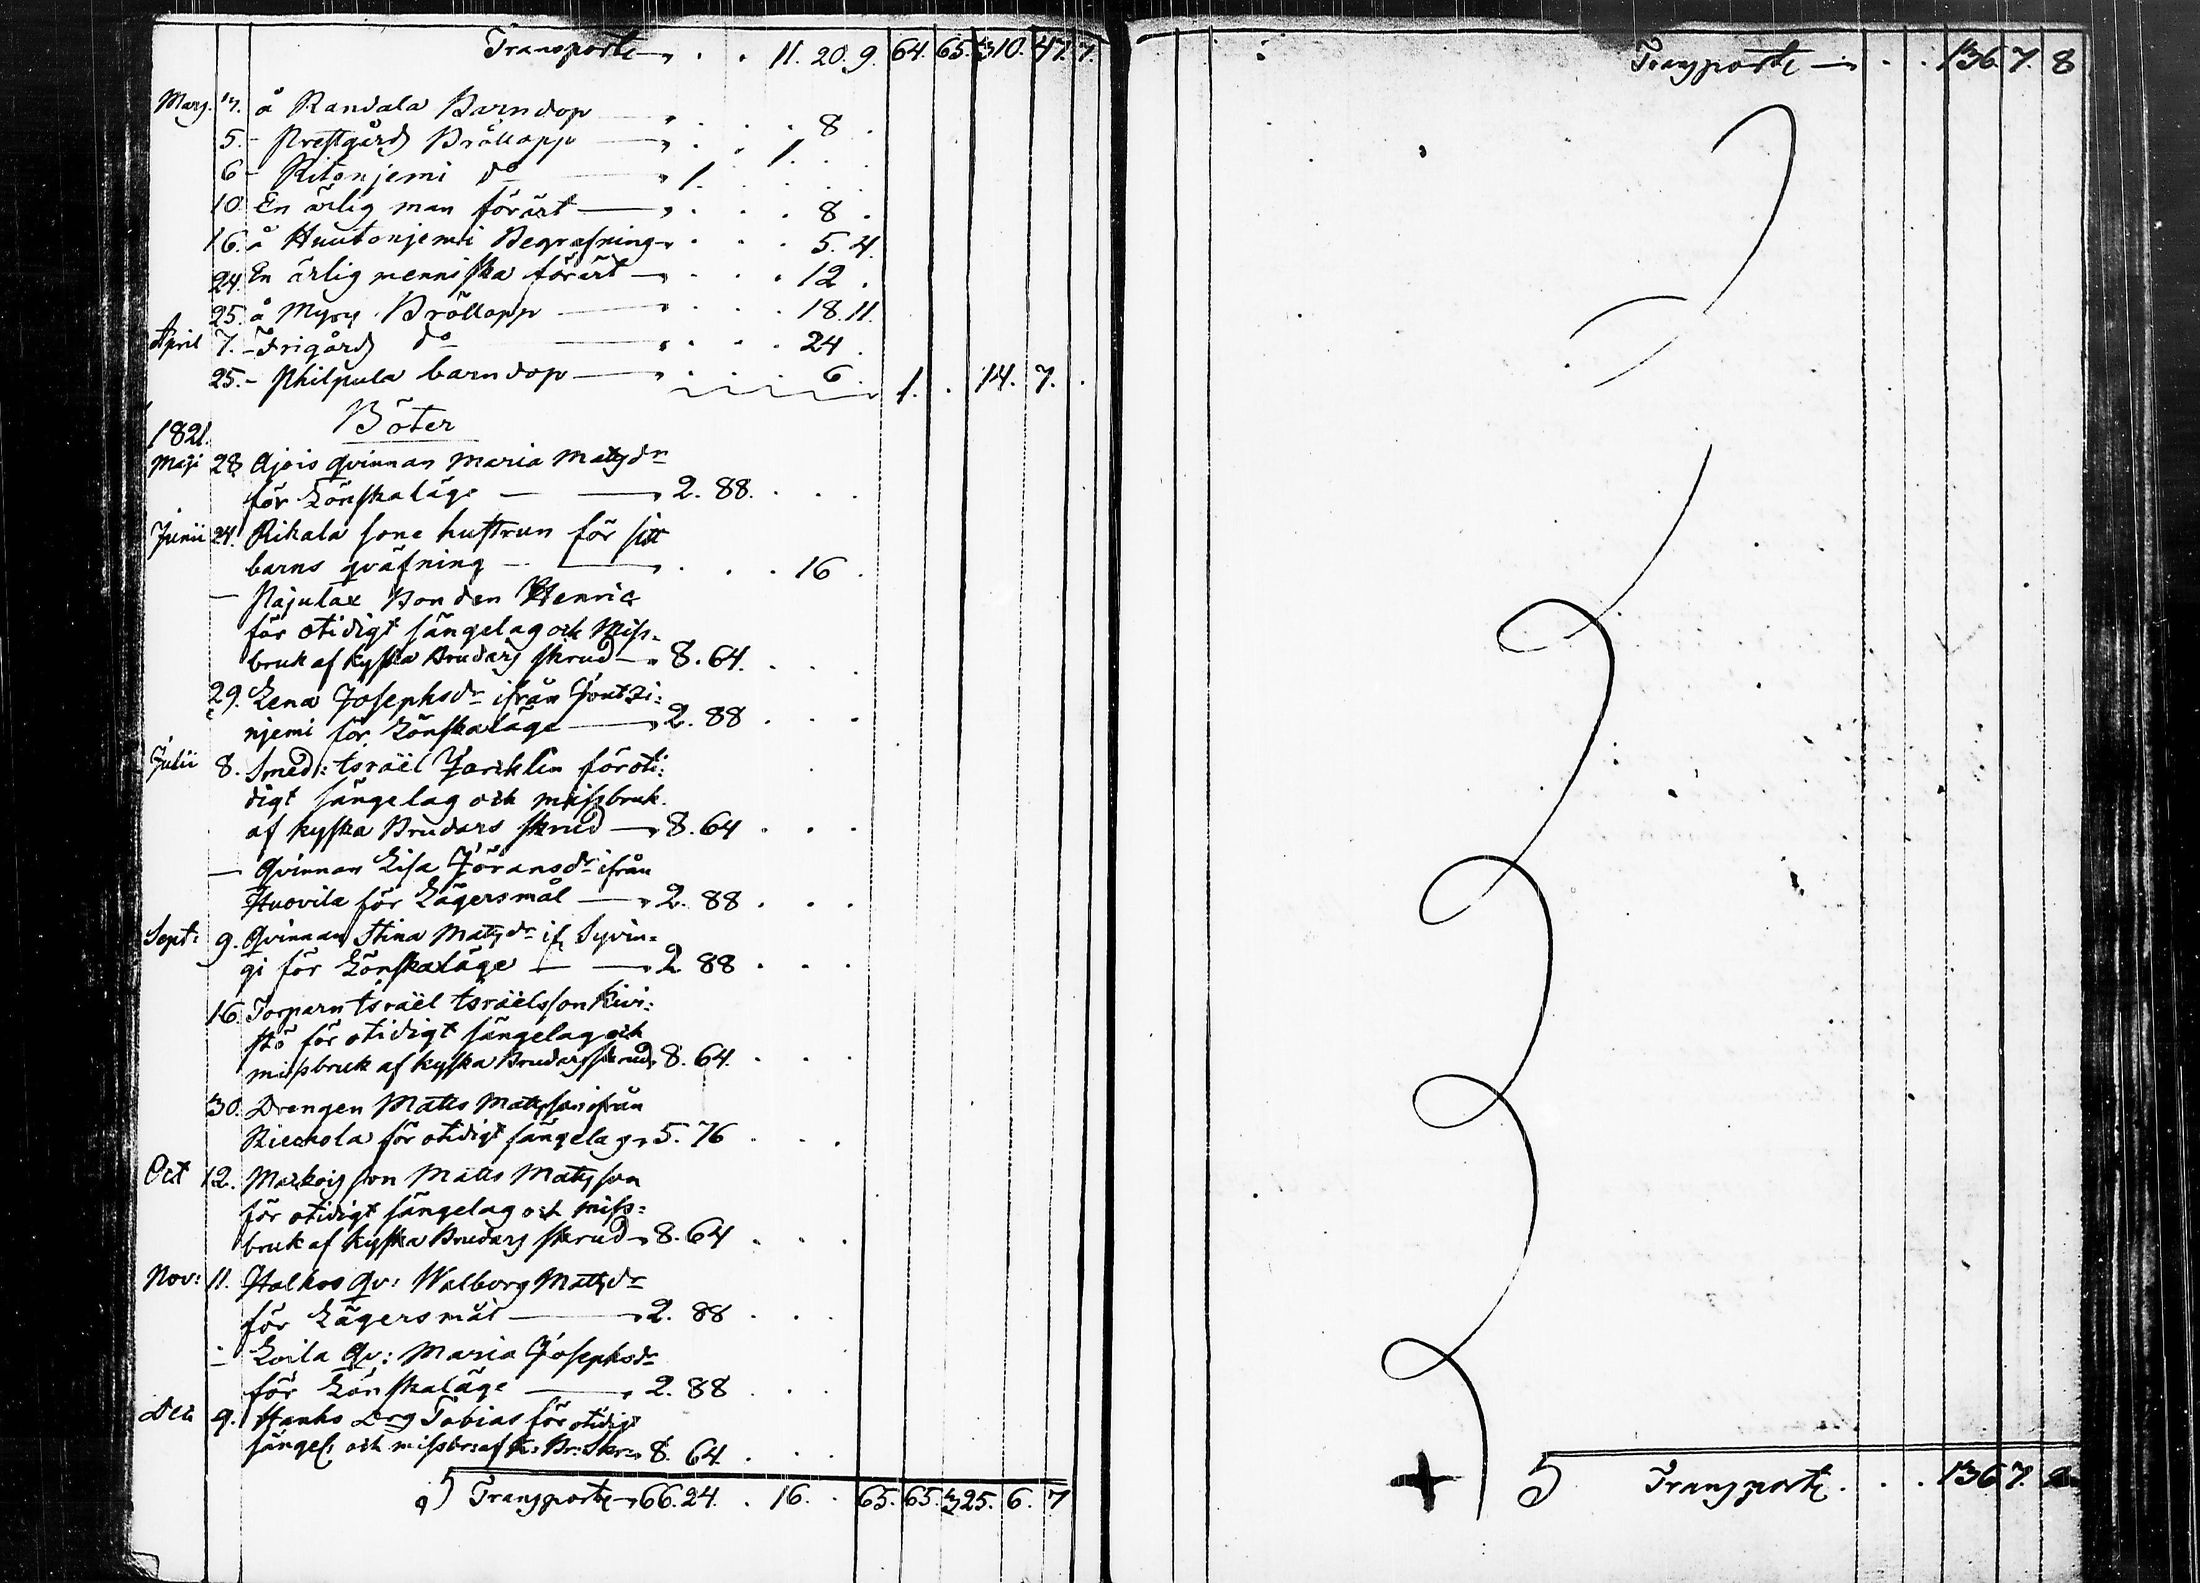 Transporte . . 11. 20. 9. 64. 65. 310. 47. 7.
Marj. 17. å Randala Barndop . . . 8 .
5. - Prestgård Bröllopp . . 1. . .
6 - Ritonjemi do 1. . . . .
10. En ärlig man förärt . . . 8 .
16. å Huutonjemi Begrafning . . . 5. 4.
24. En ärlig menniska förärt . . . 12 .
25. å Myry Bröllopp . . . 18. 11.
April 7. - Frigård do . . . 24 .
25. - Philpula barndop . . . 6. 1. . 14. 7. .
Böter
1821.
Maji 28 Ajois qvinnan Maria Matsdr
för Lönskaläge 2. 88. . . .
Junii 24. Rikala sone hustrun för sitt
barns gräfning . . . 16 .
— Pajulax Bonden Henric
för otidigt sängelag och Miss-
bruk af kyska Brudars skrud 8. 64. . . .
29. Lena Josephsdr ifrån
njemi för Lönskaläge 2. 88 . . .
Julii 8. Smed: Israël för oti:
digt sängelag och missbruk
af kyska Brudars skrud 8. 64 . . .
— Qvinnan Lisa Jöransdr ifrån
Huovila för Lägersmål 2. 88 . . .
Sept: 9. Qvinnan Stina Matsdr if. Syvin=
gi för Lönskaläge 2 88 . . .
16. Torparn Israël Israëlsson Kivi:
stö för otidigt sängelag och
missbruk af kyska Brudars skrud 8. 64. . . .
30. Drengen Matts Mattsson ifrån
för otidigt sängelag 5. 76 . . .
Oct 12. Markois son Matts Matsson
för otidigt sängelag och miss=
bruk af kyska Brudars skrud 8. 64 . . .
Nov: 11. Halkos qv: Walborg Mattsdr
för Lägersmål 2. 88 . . .
— Loila Qv: Maria Josephsdr
för Lönskaläge 2. 88 . . .
Dec 9. Hanko Drg Tobias för otidigt
sängel. och missbr: af k: Br: Skr: 8. 64 . . .
Transporte 66. 24. . 16. . 65. 65. 325. 6. 7
Transporte . . 136. 7. 8
Transporte . . . 136 7.